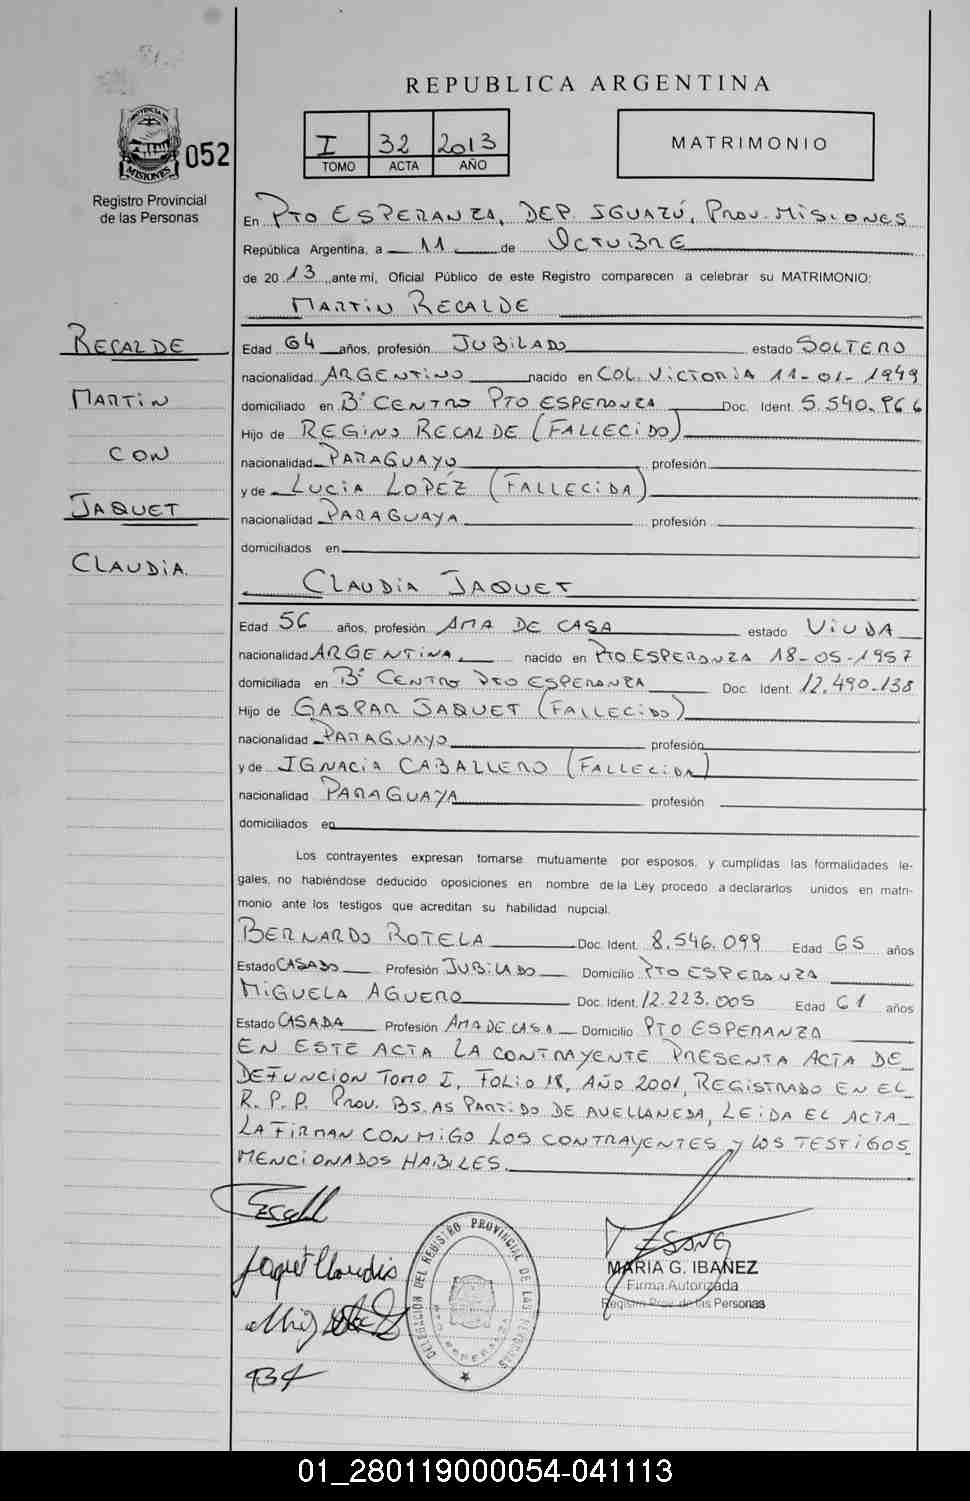 REPUBLICA ARGENTINA
I 32 2013
TOMO ACTA AÑO
MATRIMONIO
PROVINCIA DE
MISIONES
052
Registro Provincial
de las Personas
En PTO ESPERANZA, DEP. IGUAZÚ, PROV. MISIONES
República Argentina, a 11 de OCTUBRE
de 2013, ante mi, Oficial Público de este Registro comparecen a celebrar su MATRIMONIO:
MARTIN RECALDE
RECALDE
MARTIN
CON
JAQUET
CLAUDIA
Edad 64 años, profesión JUBILADO estado SOLTERO
nacionalidad ARGENTINO nacido en COL. VICTORIA 11-01-1949
domiciliado en Bº CENTRO PTO ESPERANZA Doc. Ident. 5.540.966
Hijo de REGINO RECALDE (FALLECIDO)
nacionalidad PARAGUAYO profesión
y de LUCIA LOPÉZ (FALLECIDA)
nacionalidad PARAGUAYA profesión
domiciliados en
CLAUDIA JAQUET
Edad 56 años, profesión AMA DE CASA estado VIUDA
nacionalidad ARGENTINA nacido en PTO ESPERANZA 18-05-1957
domiciliada en Bº CENTRO PTO ESPERANZA Doc. Ident. 12.490.138
Hijo de GASPAR JAQUET (FALLECIDO)
nacionalidad PARAGUAYO profesión
y de IGNACIA CABALLERO (FALLECIDA)
nacionalidad PARAGUAYA profesión
domiciliados en
Los contrayentes expresan tomarse mutuamente por esposos, y cumplidas las formalidades le-
gales, no habiéndose deducido oposiciones en nombre de la Ley procedo a declararlos unidos en matri-
monio ante los testigos que acreditan su habilidad nupcial.
BERNARDO ROTELA Doc. Ident. 8.546.099 Edad 65 años
Estado CASADO Profesión JUBILADO Domicilio PTO ESPERANZA
MIGUELA AGUERO Doc. Ident. 12.223.005 Edad 61 años
Estado CASADA Profesión AMA DE CASA Domicilio PTO ESPERANZA
EN ESTE ACTA LA CONTRAYENTE PRESENTA ACTA DE
DEFUNCION TOMO I, FOLIO 18, AÑO 2001, REGISTRADO EN EL
R.P.P. PROV. BS. AS PARTIDO DE AVELLANEDA, LEIDA EL ACTA
LA FIRMAN CONMIGO LOS CONTRAYENTES Y LOS TESTIGOS
MENCIONADOS HABILES.
Jaquet Claudia
DELEGACION DEL REGISTRO PROVINCIAL DE LAS PERSONAS
MARIA G. IBAÑEZ
Firma Autorizada
Registro Prov. de las Personas
01_280119000054-041113